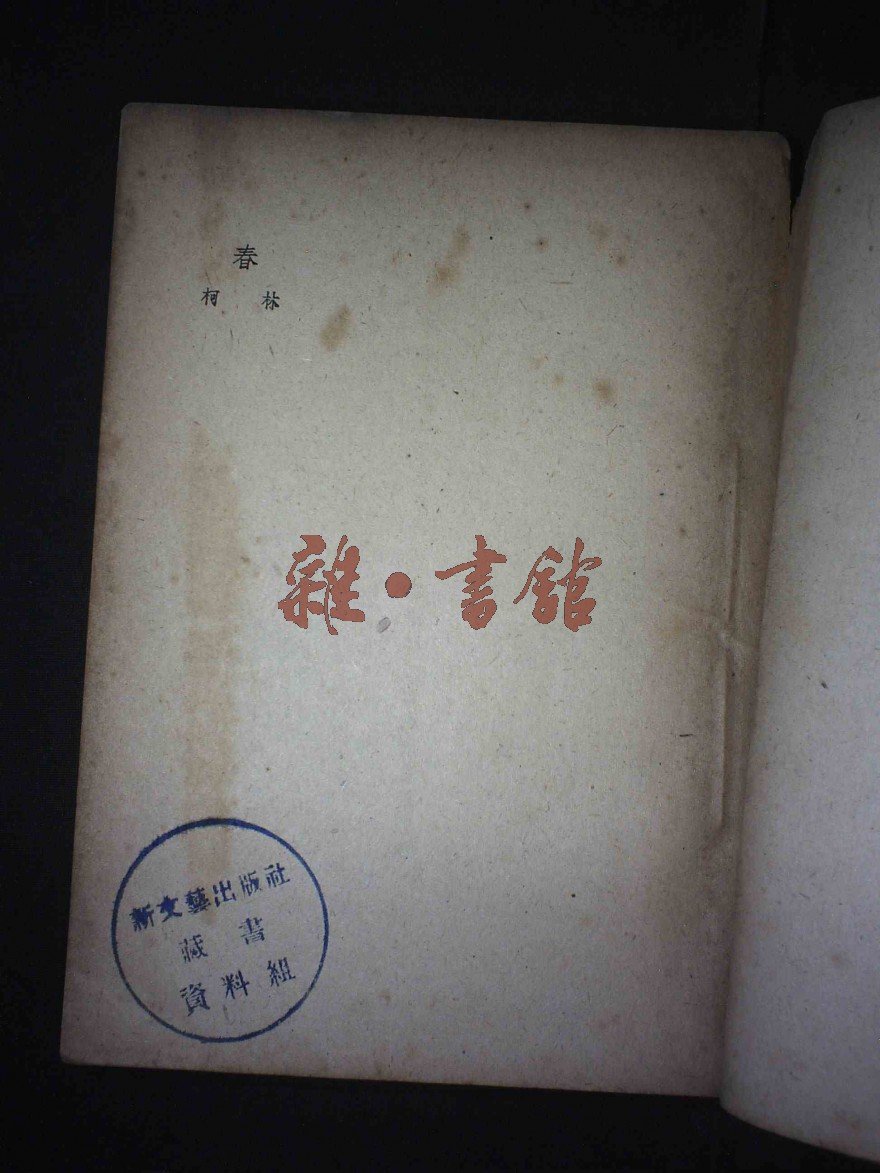 春
柯 林
雜·書館
新文藝出版社
藏書
資料組